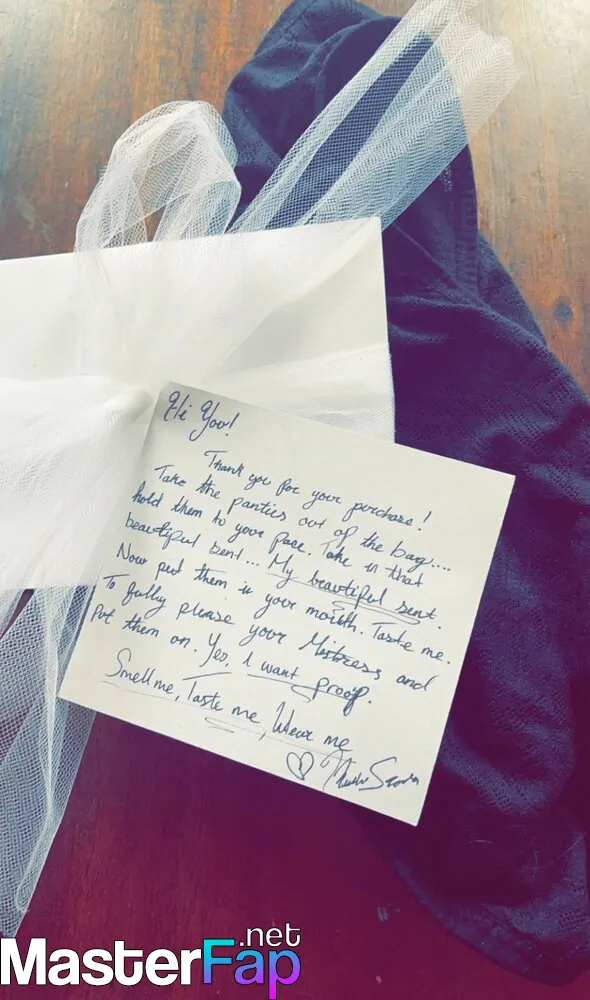 Hi You!
Thank you for your purchase!
Take the panties out of the bag....
hold them to your face. Take in that
beautiful sent... My beautiful sent.
Now put them in your mouth. Taste me.
To fully please your Mistress and
Put them on. Yes, I want proof.
Smell me, Taste me, Wear me
MasterFap.net